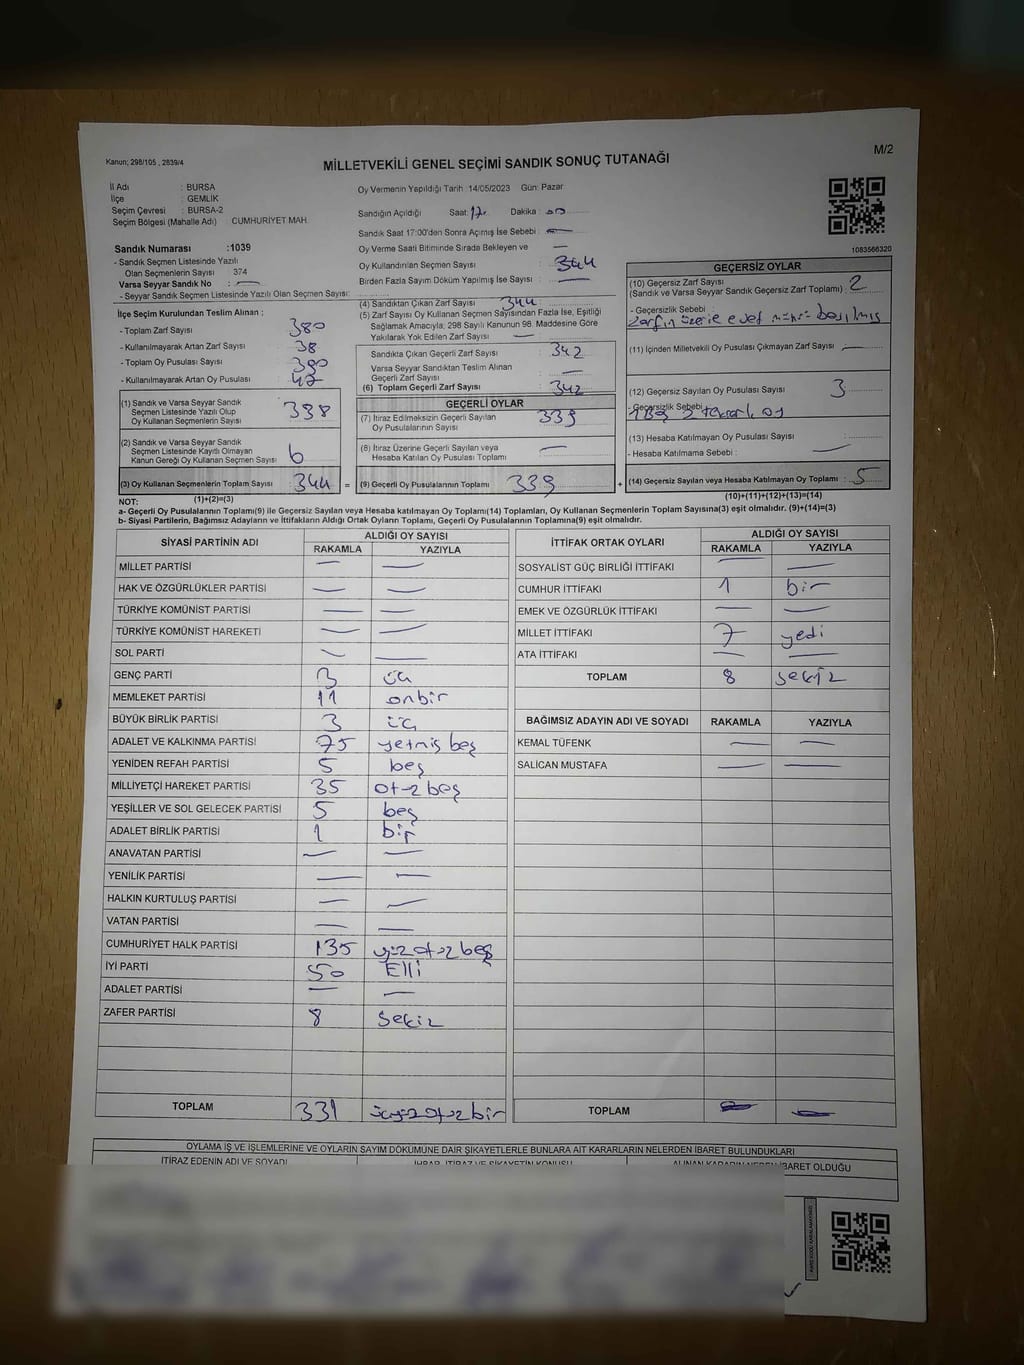 Kanun; 298/105 , 2839/4
MİLLETVEKİLİ GENEL SEÇİMİ SANDIK SONUÇ TUTANAĞI
M/2
İl Adı : BURSA
İlçe : GEMLİK
Seçim Çevresi : BURSA-2
Seçim Bölgesi (Mahalle Adı) : CUMHURİYET MAH.
Sandık Numarası :1039
- Sandık Seçmen Listesinde Yazılı
Olan Seçmenlerin Sayısı : 374
Varsa Seyyar Sandık No : —
- Seyyar Sandık Seçmen Listesinde Yazılı Olan Seçmen Sayısı:
Oy Vermenin Yapıldığı Tarih :14/05/2023 Gün: Pazar
Sandığın Açıldığı Saat: 17. Dakika : 00
Sandık Saat 17:00'den Sonra Açımış İse Sebebi : —
Oy Verme Saati Bitiminde Sırada Bekleyen ve —
Oy Kullandırılan Seçmen Sayısı : 344
Birden Fazla Sayım Döküm Yapılmış İse Sayısı : —
1083566320
İlçe Seçim Kurulundan Teslim Alınan ;
- Toplam Zarf Sayısı : 380
- Kullanılmayarak Artan Zarf Sayısı : 38
- Toplam Oy Pusulası Sayısı : 380
- Kullanılmayarak Artan Oy Pusulası : 42
(1) Sandık ve Varsa Seyyar Sandık
Seçmen Listesinde Yazılı Olup
Oy Kullanan Seçmen Sayısı : 338
(2) Sandık ve Varsa Seyyar Sandık
Seçmen Listesinde Kayıtlı Olmayan
Kanun Gereği Oy Kullanan Seçmen Sayısı : 6
(3) Oy Kullanan Seçmenlerin Toplam Sayısı : 344 =
(4) Sandıktan Çıkan Zarf Sayısı : 344
(5) Zarf Sayısı Oy Kullanan Seçmen Sayısından Fazla İse, Eşitliği
Sağlamak Amacıyla; 298 Sayılı Kanunun 98. Maddesine Göre
Yakılarak Yok Edilen Zarf Sayısı : —
Sandıkta Çıkan Geçerli Zarf Sayısı : 342
Varsa Seyyar Sandıktan Teslim Alınan
Geçerli Zarf Sayısı : —
(6) Toplam Geçerli Zarf Sayısı : 342
GEÇERLİ OYLAR
(7) İtiraz Edilmeksizin Geçerli Sayılan
Oy Pusulalarının Sayısı : 339
(8) İtiraz Üzerine Geçerli Sayılan veya
Hesaba Katılan Oy Pusulası Toplamı : —
(9) Geçerli Oy Pusulalarının Toplamı : 339 +
GEÇERSİZ OYLAR
(10) Geçersiz Zarf Sayısı
(Sandık ve Varsa Seyyar Sandık Geçersiz Zarf Toplamı) : 2
- Geçersizlik Sebebi :
Zarfın üzerie evet mührü basılmış
(11) İçinden Milletvekili Oy Pusulası Çıkmayan Zarf Sayısı : —
(12) Geçersiz Sayılan Oy Pusulası Sayısı : 3
- Geçersizlik Sebebi :
(13) Hesaba Katılmayan Oy Pusulası Sayısı :
- Hesaba Katılmama Sebebi : —
(14) Geçersiz Sayılan veya Hesaba Katılmayan Oy Toplamı : 5
NOT: (1)+(2)=(3) (10)+(11)+(12)+(13)=(14)
a- Geçerli Oy Pusulalarının Toplamı(9) ile Geçersiz Sayılan veya Hesaba katılmayan Oy Toplamı(14) Toplamları, Oy Kullanan Seçmenlerin Toplam Sayısına(3) eşit olmalıdır. (9)+(14)=(3)
b- Siyasi Partilerin, Bağımsız Adayların ve İttifakların Aldığı Ortak Oyların Toplamı, Geçerli Oy Pusulalarının Toplamına(9) eşit olmalıdır.
SİYASİ PARTİNİN ADI ALDIĞI OY SAYISI
RAKAMLA YAZIYLA
MİLLET PARTİSİ — —
HAK VE ÖZGÜRLÜKLER PARTİSİ — —
TÜRKİYE KOMÜNİST PARTİSİ — —
TÜRKİYE KOMÜNİST HAREKETİ — —
SOL PARTİ — —
GENÇ PARTİ 3 üç
MEMLEKET PARTİSİ 11 onbir
BÜYÜK BİRLİK PARTİSİ 3 üç
ADALET VE KALKINMA PARTİSİ 75 yetmiş beş
YENİDEN REFAH PARTİSİ 5 beş
MİLLİYETÇİ HAREKET PARTİSİ 35 otuz beş
YEŞİLLER VE SOL GELECEK PARTİSİ 5 beş
ADALET BİRLİK PARTİSİ 1 bir
ANAVATAN PARTİSİ — —
YENİLİK PARTİSİ — —
HALKIN KURTULUŞ PARTİSİ — —
VATAN PARTİSİ — —
CUMHURİYET HALK PARTİSİ 135 yüz otuz beş
İYİ PARTİ 50 Elli
ADALET PARTİSİ — —
ZAFER PARTİSİ 8 sekiz
TOPLAM 331 üçyüz otuz bir
İTTİFAK ORTAK OYLARI ALDIĞI OY SAYISI
RAKAMLA YAZIYLA
SOSYALİST GÜÇ BİRLİĞİ İTTİFAKI — —
CUMHUR İTTİFAKI 1 bir
EMEK VE ÖZGÜRLÜK İTTİFAKI — —
MİLLET İTTİFAKI 7 yedi
ATA İTTİFAKI — —
TOPLAM 8 sekiz
BAĞIMSIZ ADAYIN ADI VE SOYADI RAKAMLA YAZIYLA
KEMAL TÜFENK — —
SALİCAN MUSTAFA — —
TOPLAM — —
OYLAMA İŞ VE İŞLEMLERİNE VE OYLARIN SAYIM DÖKÜMÜNE DAİR ŞİKAYETLERLE BUNLARA AİT KARARLARIN NELERDEN İBARET BULUNDUKLARI
İTİRAZ EDENİN ADI VE SOYADI İHBAR, İTİRAZ VE ŞİKAYETİN KONUSU ALINAN KARARIN NEDEN İBARET OLDUĞU